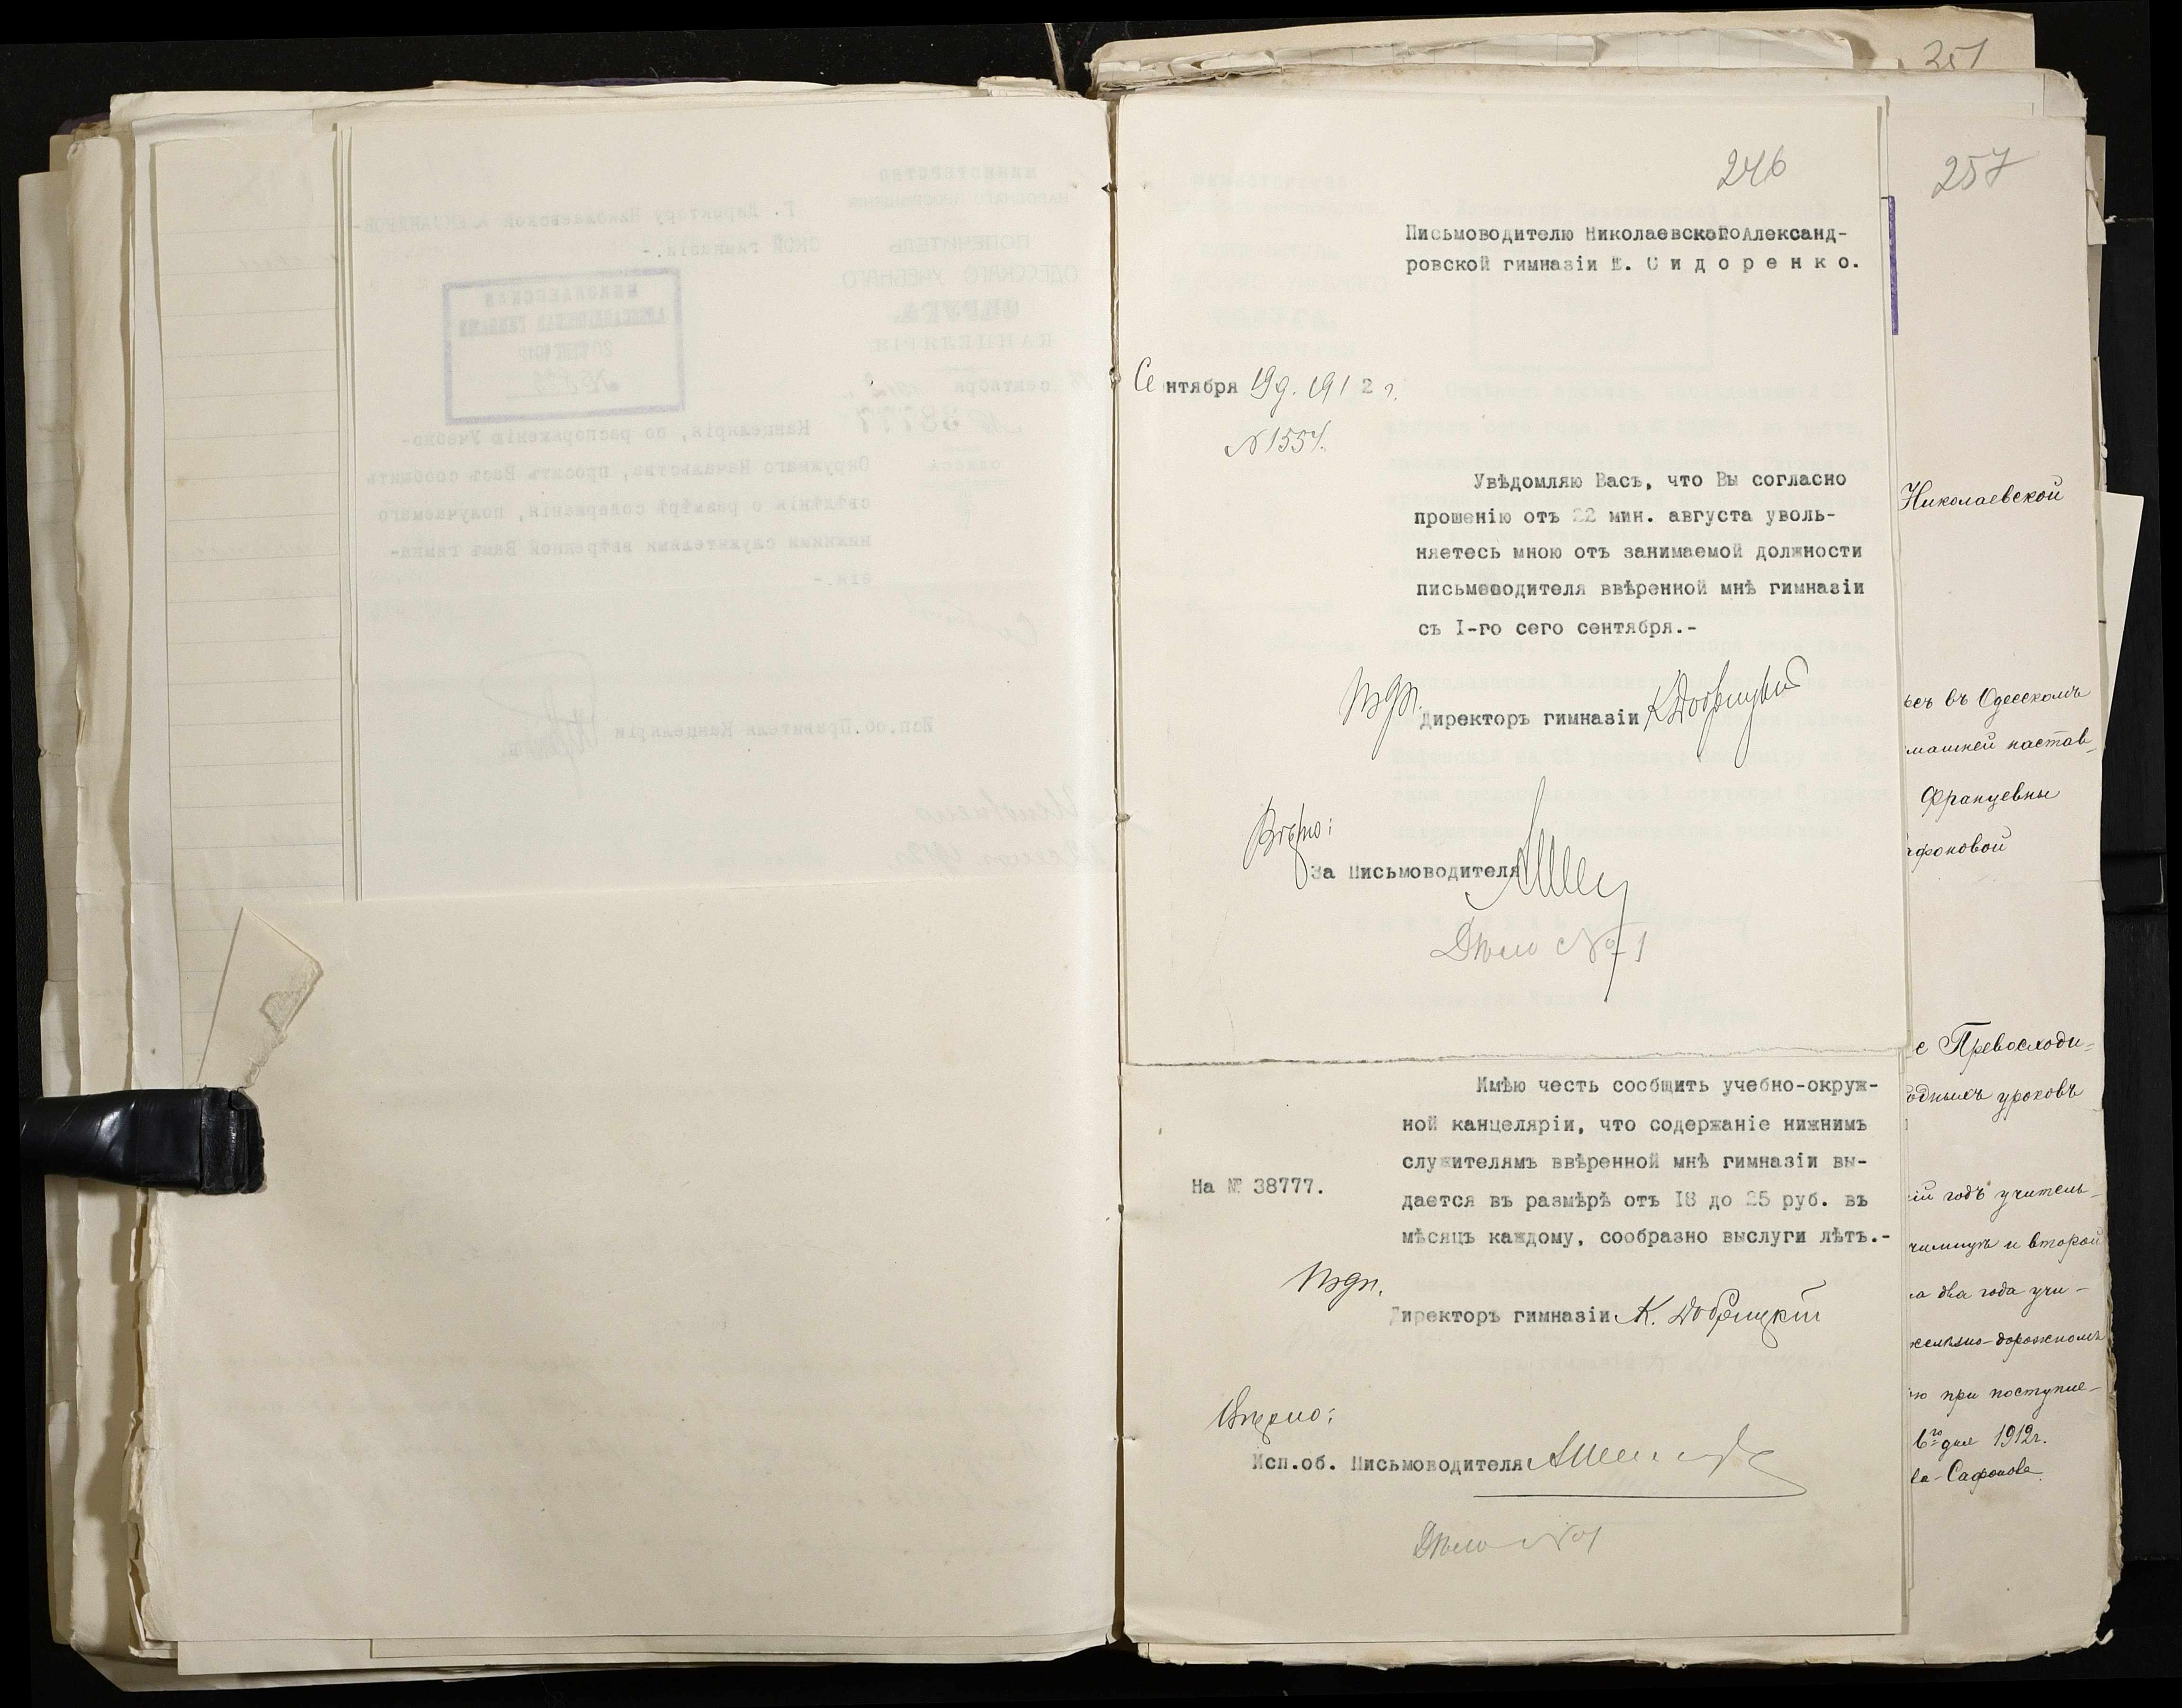 251
257
246
Письмоводителю Николаевской Александ-
ровской гимназіи Ш. С и д о р е н к о.
Сентября 19 д. 1912 г.
№ 1554.
Увѣдомляю Васъ, что Вы согласно
прошенію отъ 22 мин. августа уволь-
няетесь мною отъ занимаемой должности
письмоводителя ввѣренной мнѣ гимназіи
съ I-го сего сентября.-
Подп. Директоръ гимназіи К Добрицкій
Вѣрно:
За Письмоводителя
Дѣло № 1
Имѣю честь сообщить учебно-окруж-
ной канцеляріи, что содержаніе нижнимъ
служителямъ ввѣренной мнѣ гимназіи вы-
На № 38777.
дается въ размѣрѣ отъ 18 до 25 руб. въ
мѣсяцъ каждому, сообразно выслуги лѣтъ.-
Подп.
Директоръ гимназіи К. Добрицкій
Вѣрно:
Исп.об. Письмоводителя
Дѣло №1
Николаевской
въ Одесскомъ
машней настав-
Францевны
афоновой
е Превосходи-
одныхъ уроковъ
ій годъ учитель-
и второй
а два года учи-
желѣзно-дорожномъ
ю при поступле-
6го дня 1912г.
ва-Сафонова.
МИНИСТЕРСТВО
НАРОДНАГО ПРОСВѢЩЕНІЯ
ПОПЕЧИТЕЛЬ
ОДЕССКАГО УЧЕБНАГО
ОКРУГА.
КАНЦЕЛЯРІЯ
сентября 1912
№ 38777
ОДЕССА
Г. Директору Николаевской АЛЕКСАНДРОВ-
СКОЙ гимназіи.-
НИКОЛАЕВСКАЯ
АЛЕКСАНДРОВСКАЯ ГИМНАЗІЯ
Канцелярія, по распоряженію Учебно-
Окружнаго Начальства, проситъ Васъ сообщить
свѣдѣнія о размѣрѣ содержанія, получаемаго
нижними служителями ввѣренной Вамъ гимна-
зіи.-
Исп.об.Правителя Канцеляріи